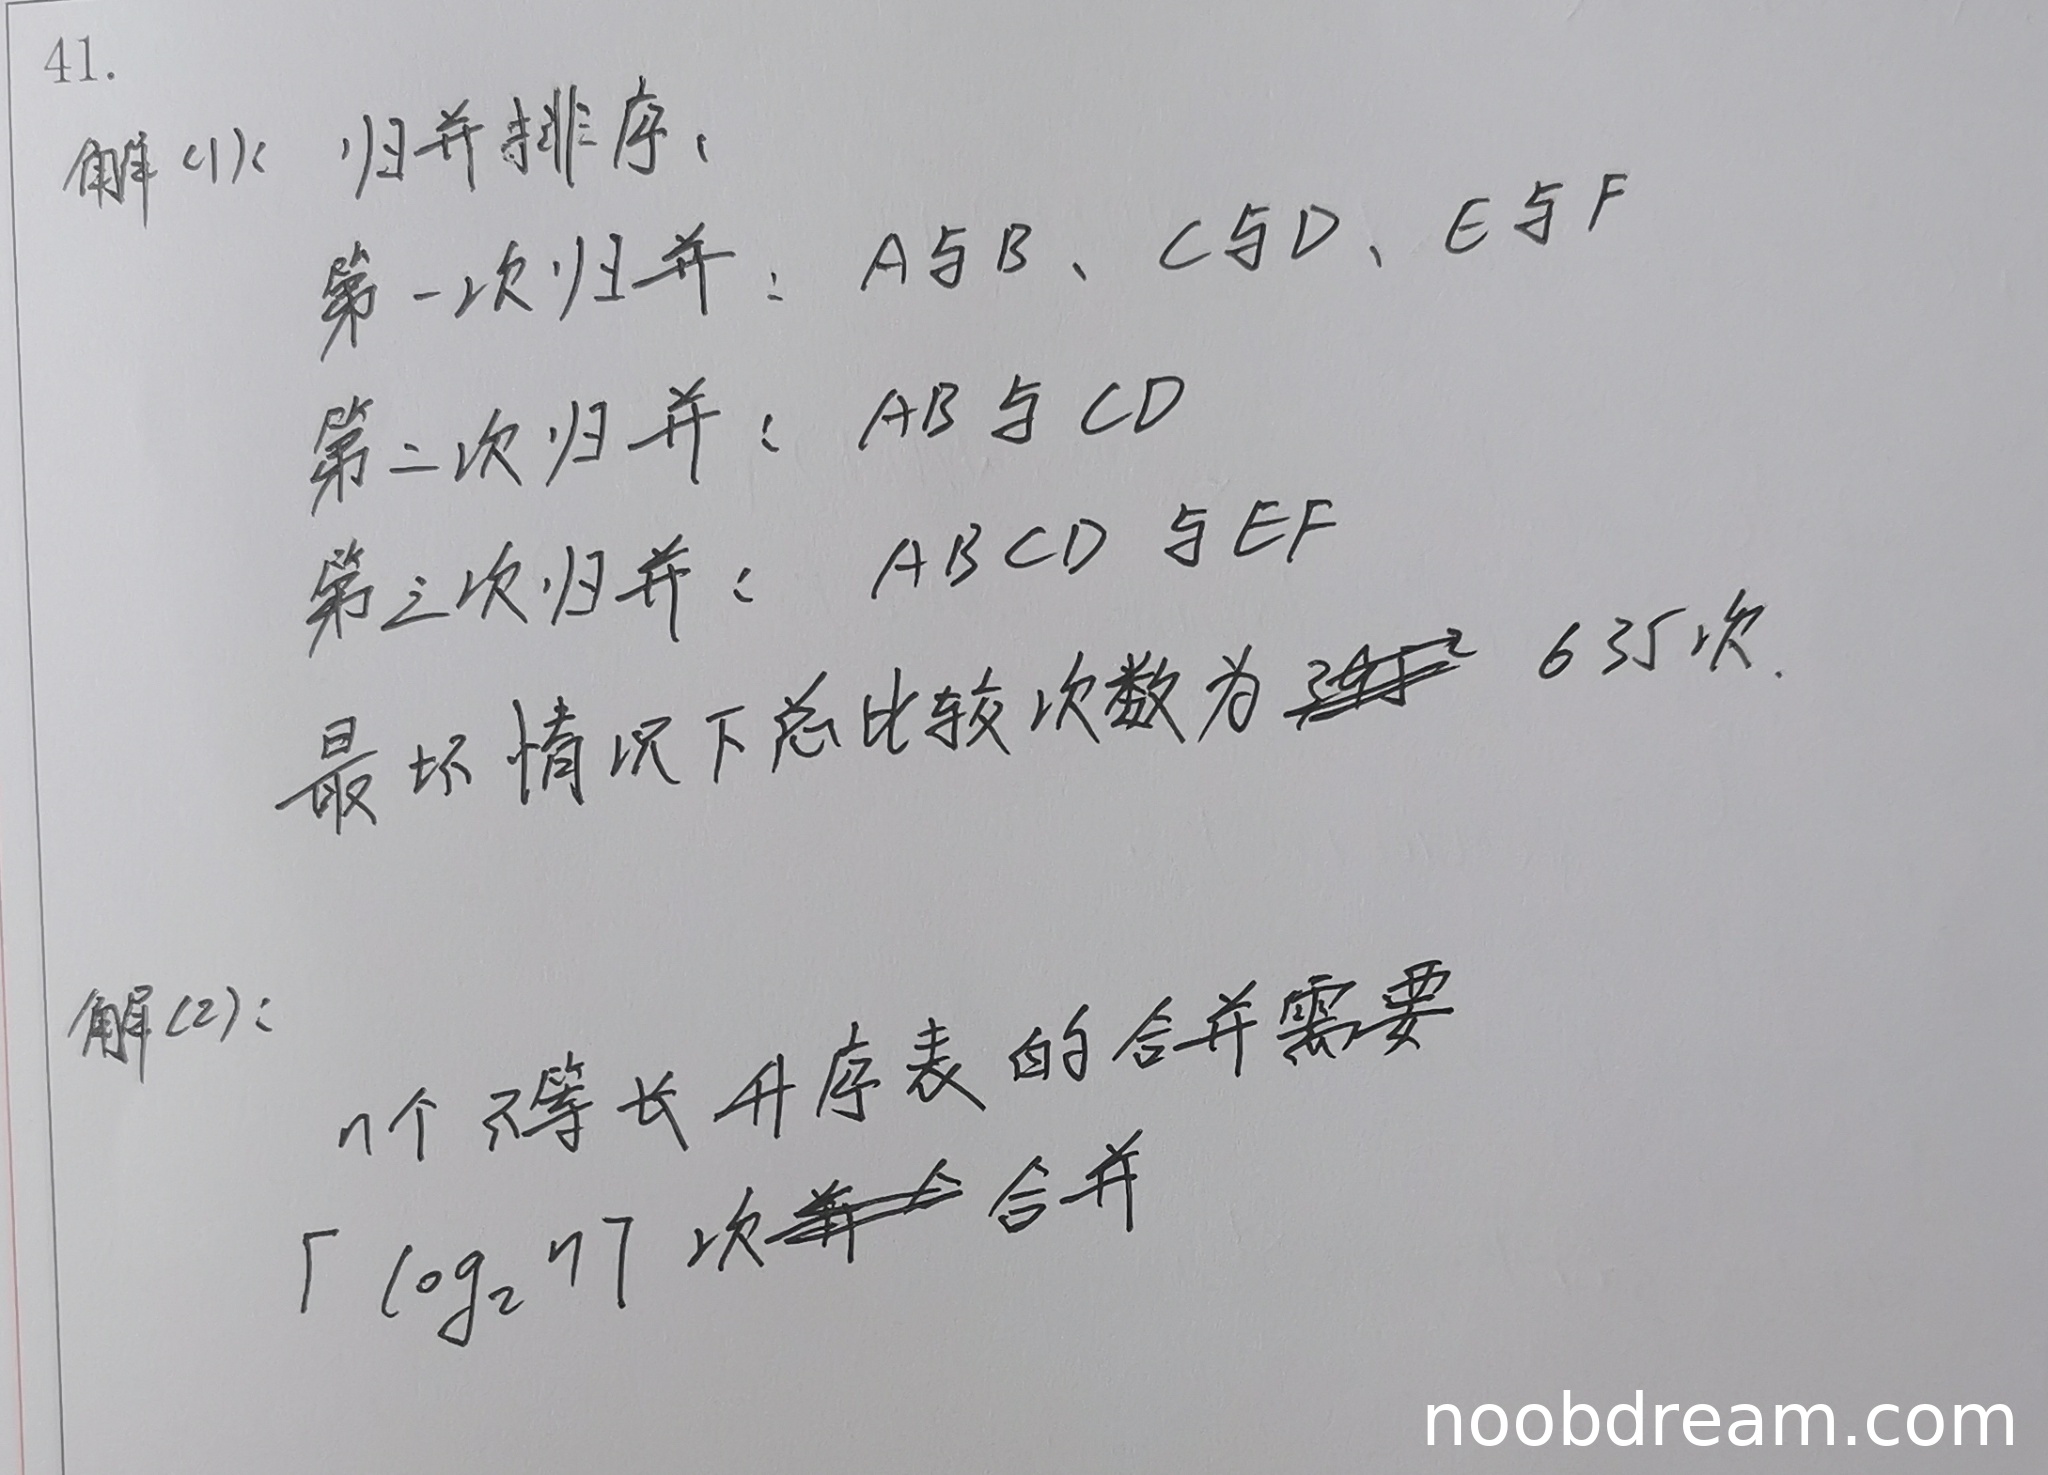 41.
解(1): 归并排序:
第一次归并: A与B、C与D、E与F
第二次归并: AB与CD
第三次归并: ABCD与EF
最坏情况下总比较次数为 635次.
解(2):
n个不等长升序表的合并需要
⌈log₂n⌉次合并
noobdream.com